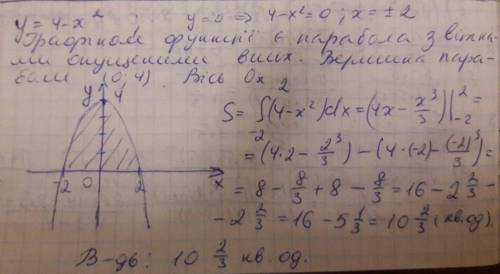 y = 4 - x²   y = 0 ⇒ 4 - x² = 0 ; x = ± 2
Графіком функції є парабола з вітка-
ми опущеними вниз. Вершина пара-
боли (0; 4). Вісь Ox
y 4
-2 0 2 x
S = ∫₋₂² (4 - x²) dx = (4x - x³/3) |₋₂² =
= (4·2 - 2³/3) - (4·(-2) - (-2)³/3) =
= 8 - 8/3 + 8 - 8/3 = 16 - 2 2/3 -
- 2 2/3 = 16 - 5 1/3 = 10 2/3 (кв.од).
В-дь: 10 2/3 кв. од.